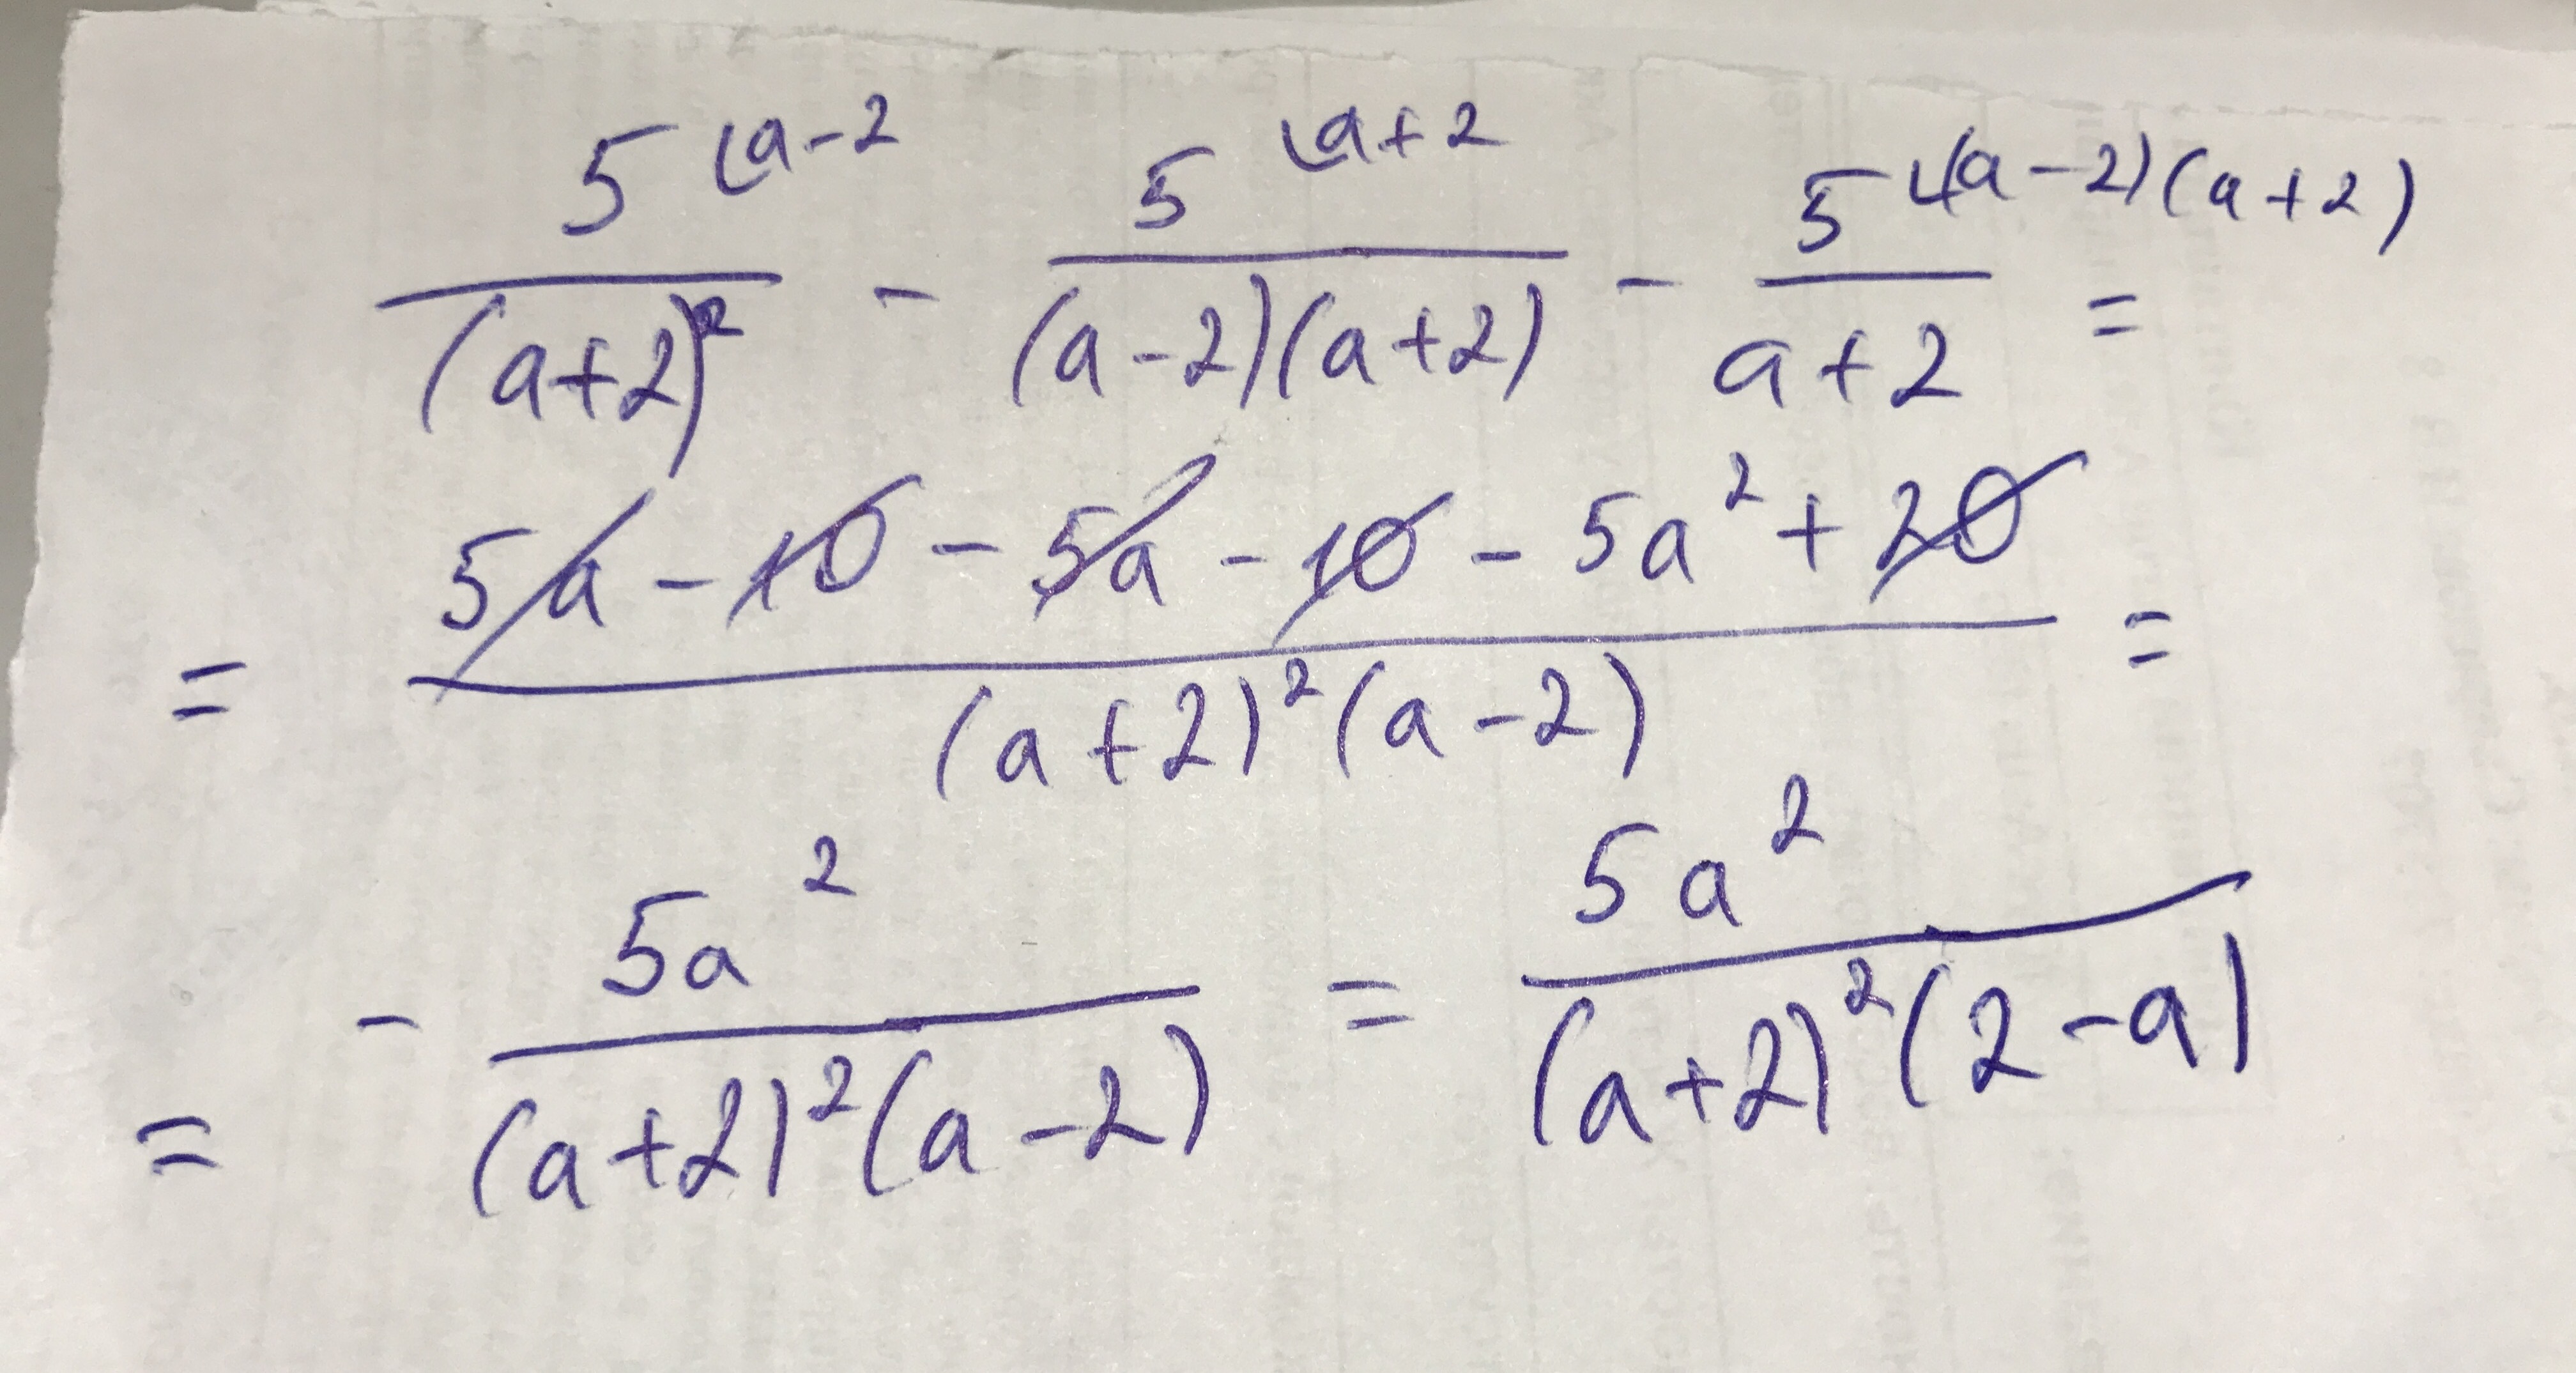 5^(a-2 / (a+2)² - 5^(a+2 / (a-2)(a+2) - 5^((a-2)(a+2) / a+2 =
= 5a - 10 - 5a - 10 - 5a² + 20 / (a+2)²(a-2) =
= - 5a² / (a+2)²(a-2) = 5a² / (a+2)²(2-a)